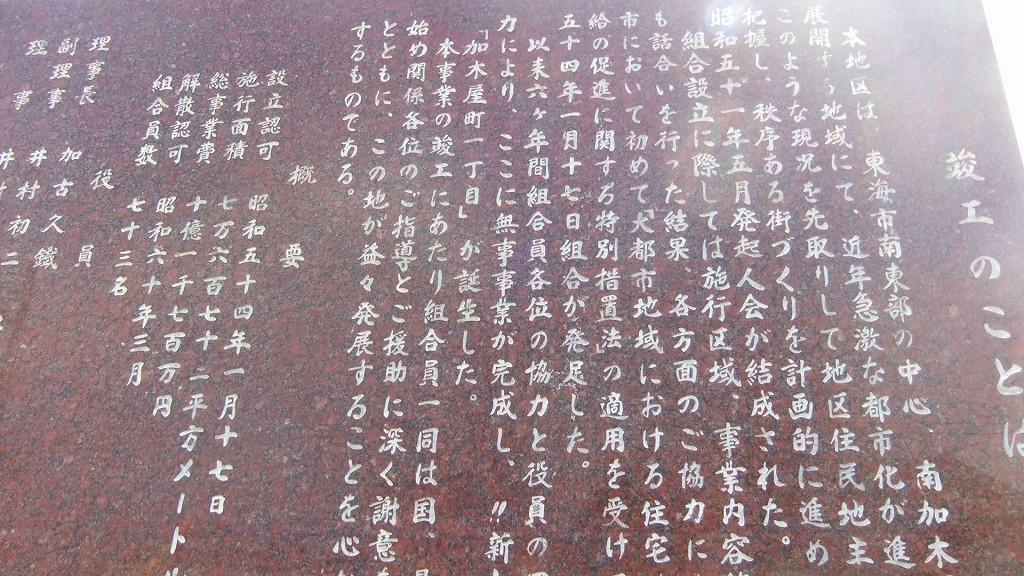 竣工のことば
本地区は 東海市南東部の中心、南加木
展開する地域にて、近年急激な都市化が進
このような現況を先取りして地区住民地主
杷握し、秩序ある街づくりを計画的に進め
昭和五十一年五月発起人会が結成された。
組合設立に際しては施行区域、事業内容
も話合いを行った結果、各方面のご協力に
市において初めて「大都市地域における住宅
給の促進に関する特別措置法」の適用を受け
五十四年一月十七日組合が発足した。
以来六ヶ年間組合員各位の協力と役員の
力により、ここに無事事業が完成し、〃新
「加木屋町一丁目」が誕生した。
本事業の竣工にあたり組合員一同は国、
始め関係各位のご指導とご援助に深く謝意
とともに、この地が益々発展することを心
するものである。
概要
設立認可 昭和五十四年一月十七日
施行面積 七万六百七十二平方メートル
総事業費 十億一千七百万円
解散認可 昭和六十年三月
組合員数 七十三名
役員
理事長 加古久鐵
副理事 井村初二
理事 井村